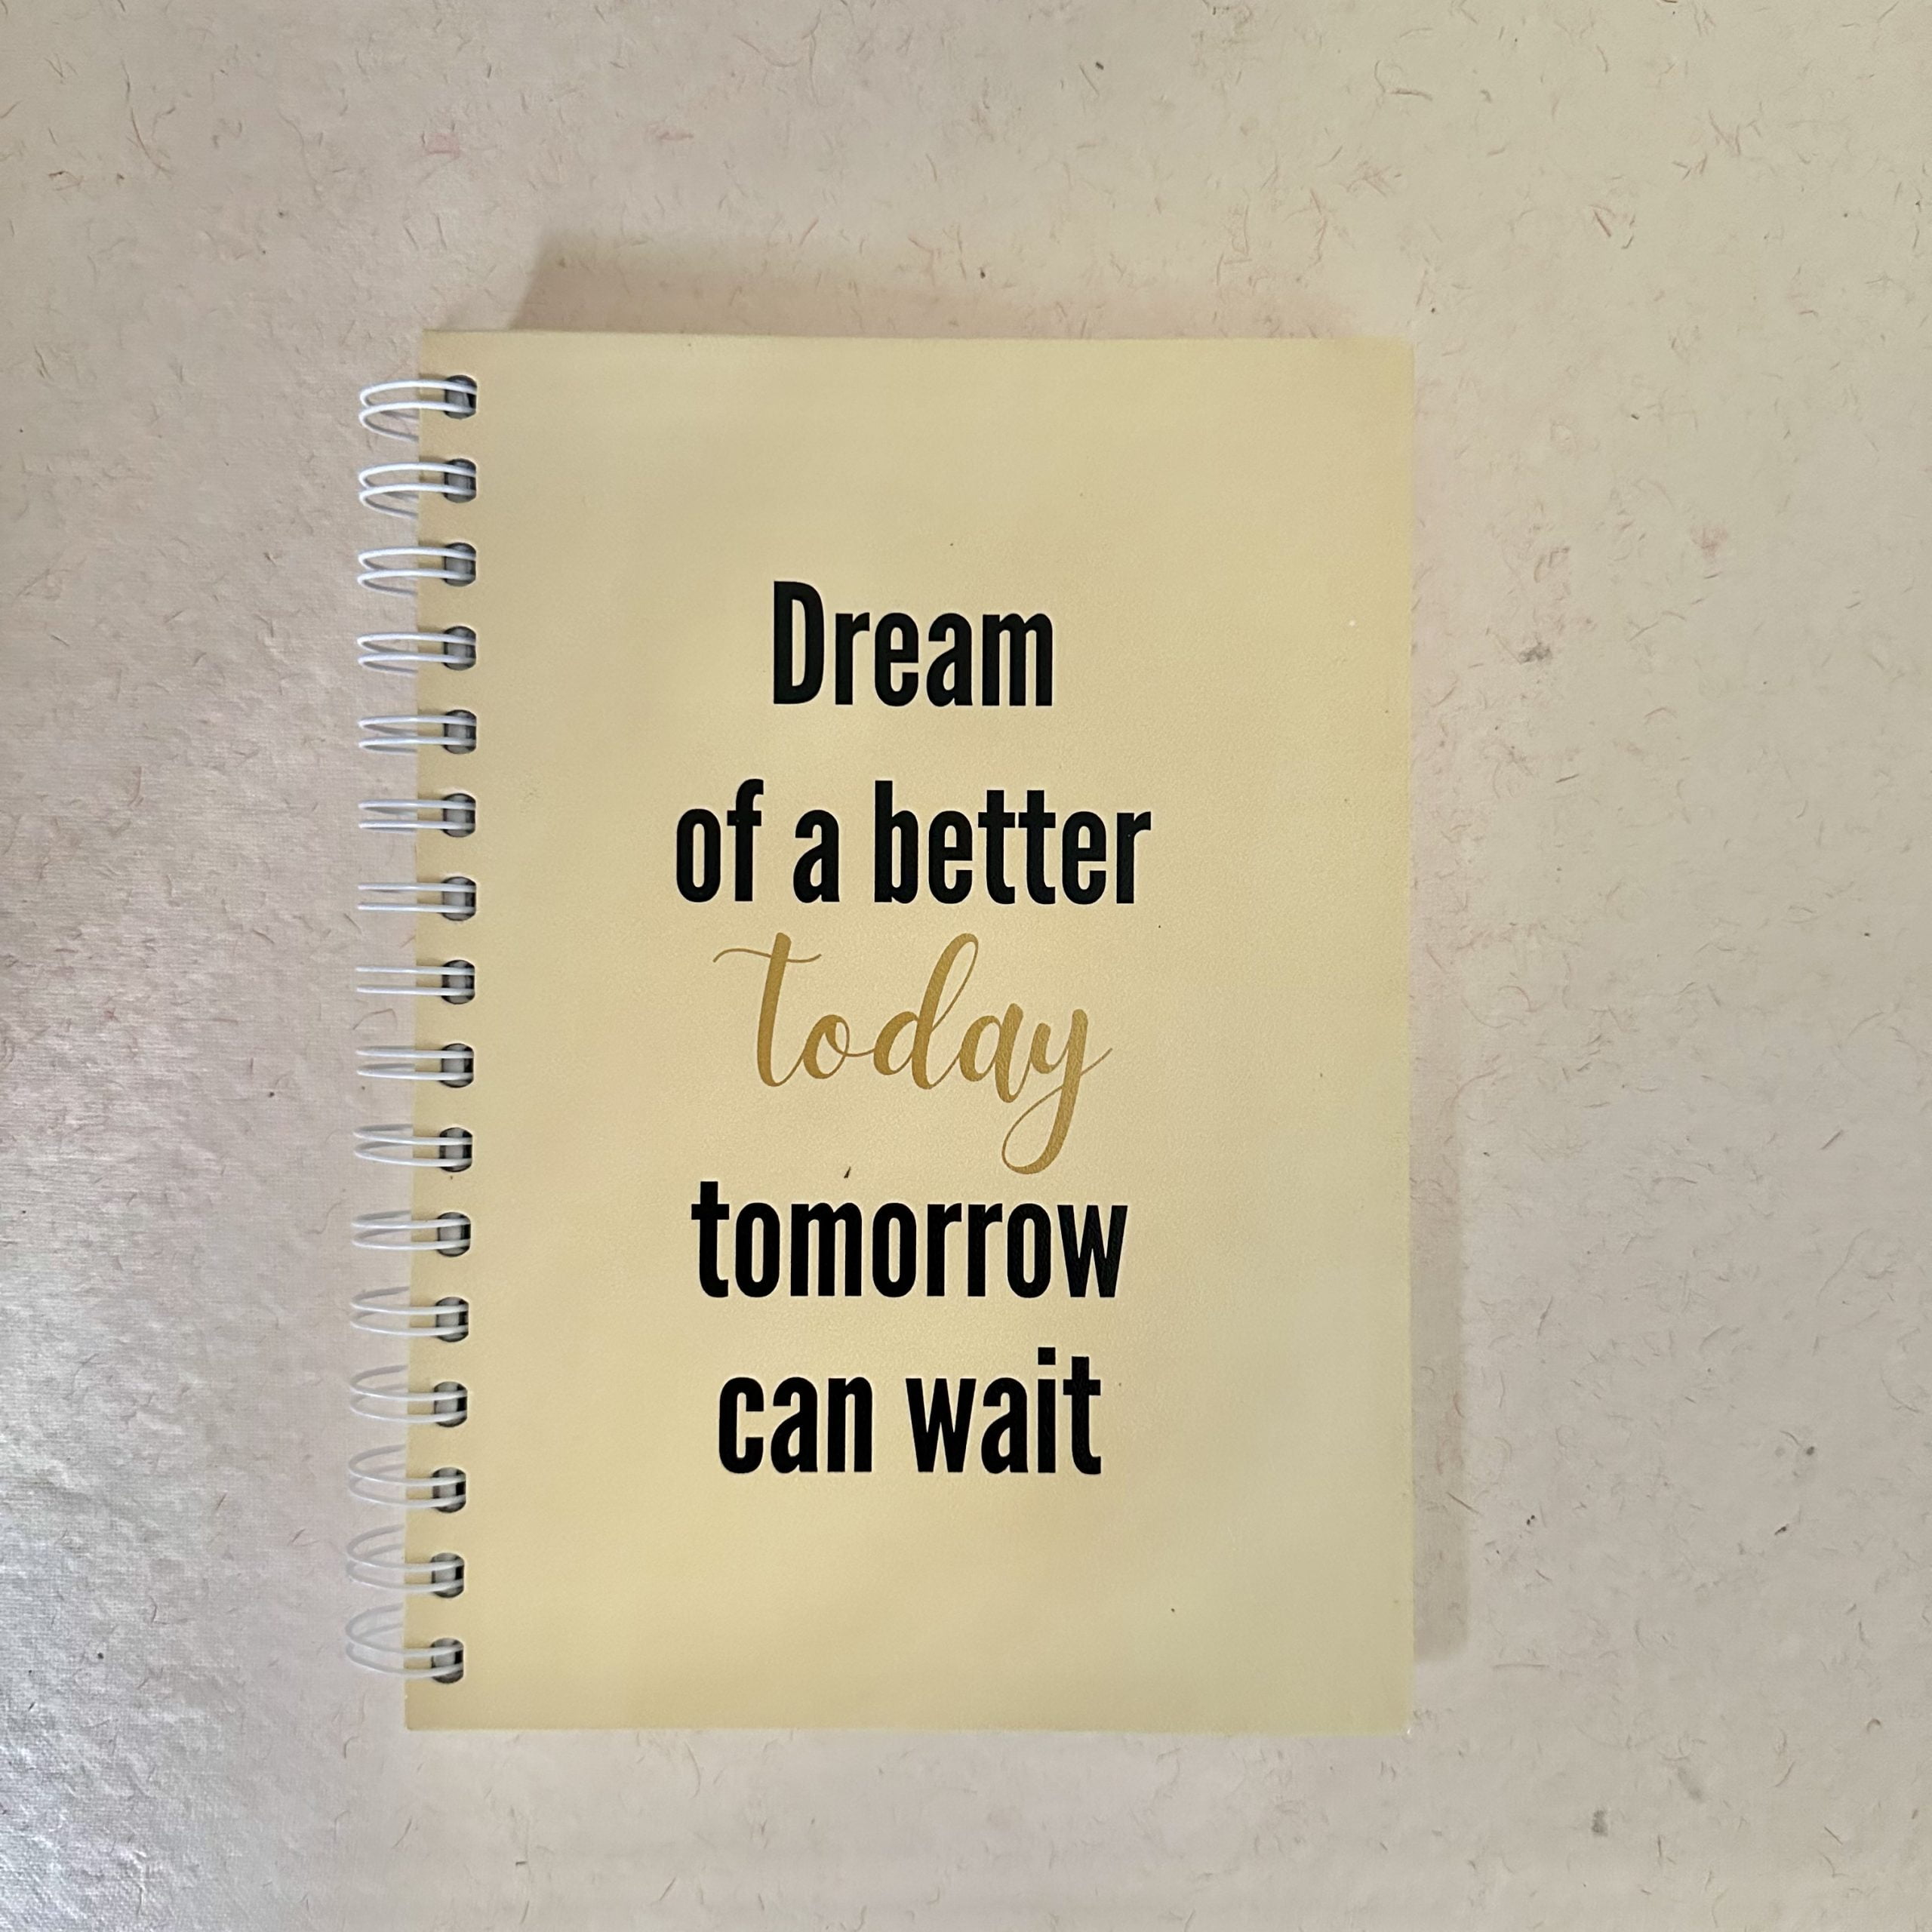 Dream
of a better
today
tomorrow
can wait